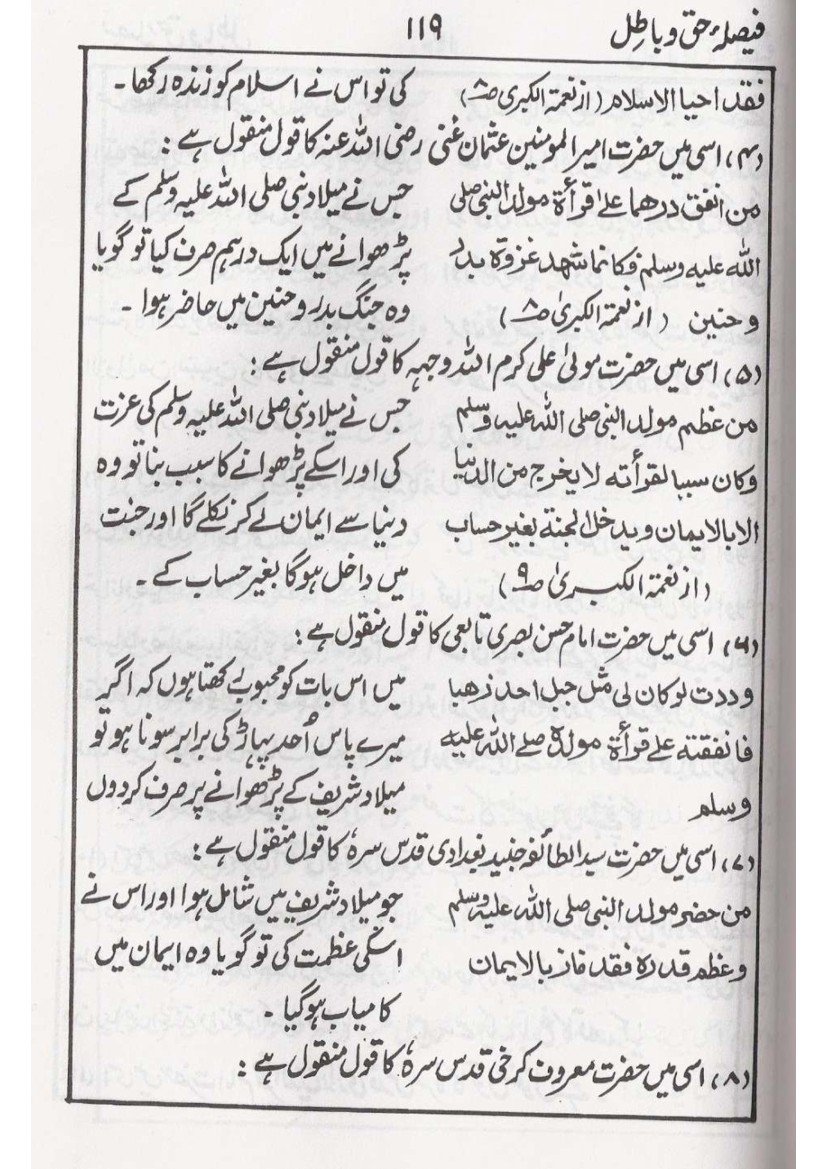 فیصلۂ حق و باطل ۱۱۹
فقد احیا الاسلام (از نعمۃ الکبریٰ ص۸) کی تو اس نے اسلام کو زندہ رکھا۔
(۴) اسی میں حضرت امیر المومنین عثمان غنی رضی اللہ عنہ کا قول منقول ہے :
من انفق درھما علےٰ قرأۃ مولد النبی صلی جس نے میلاد نبی صلی اللہ علیہ وسلم کے
اللہ علیہ وسلم فکانما شھد غزوۃ بدر پڑھوانے میں ایک درہم صرف کیا تو گویا
وحنین (از نعمۃ الکبریٰ ص۸) وہ جنگ بدر و حنین میں حاضر ہوا۔
(۵) اسی میں حضرت مولیٰ علی کرم اللہ وجہہ کا قول منقول ہے :
من عظم مولد النبی صلی اللہ علیہ وسلم جس نے میلاد نبی صلی اللہ علیہ وسلم کی عزت
وکان سببا لقرأتہ لا یخرج من الدنیا کی اور اسکے پڑھوانے کا سبب بنا تو وہ
الا بالایمان وید خل الجنۃ بغیر حساب دنیا سے ایمان لے کر نکلے گا اور جنت
(از نعمۃ الکبریٰ ص۹) میں داخل ہوگا بغیر حساب کے۔
(۶) اسی میں حضرت امام حسن بصری تابعی کا قول منقول ہے :
وددت لو کان لی مثل جبل احد ذھبا میں اس بات کو محبوب رکھتا ہوں کہ اگر
فانفقتہ علے قرأۃ مولدہ صلے اللہ علیہ میرے پاس اُحد پہاڑ کی برابر سونا ہو تو
وسلم میلاد شریف کے پڑھوانے پر صرف کردوں
(۷) اسی میں حضرت سید الطائفہ جنید بغدادی قدس سرہٗ کا قول منقول ہے :
من حضر مولد النبی صلی اللہ علیہ وسلم جو میلاد شریف میں شامل ہوا اور اس نے
وعظم قدرہ فقد فاز بالایمان اسکی عظمت کی تو گویا وہ ایمان میں
کامیاب ہوگیا۔
(۸) اسی میں حضرت معروف کرخی قدس سرہٗ کا قول منقول ہے :